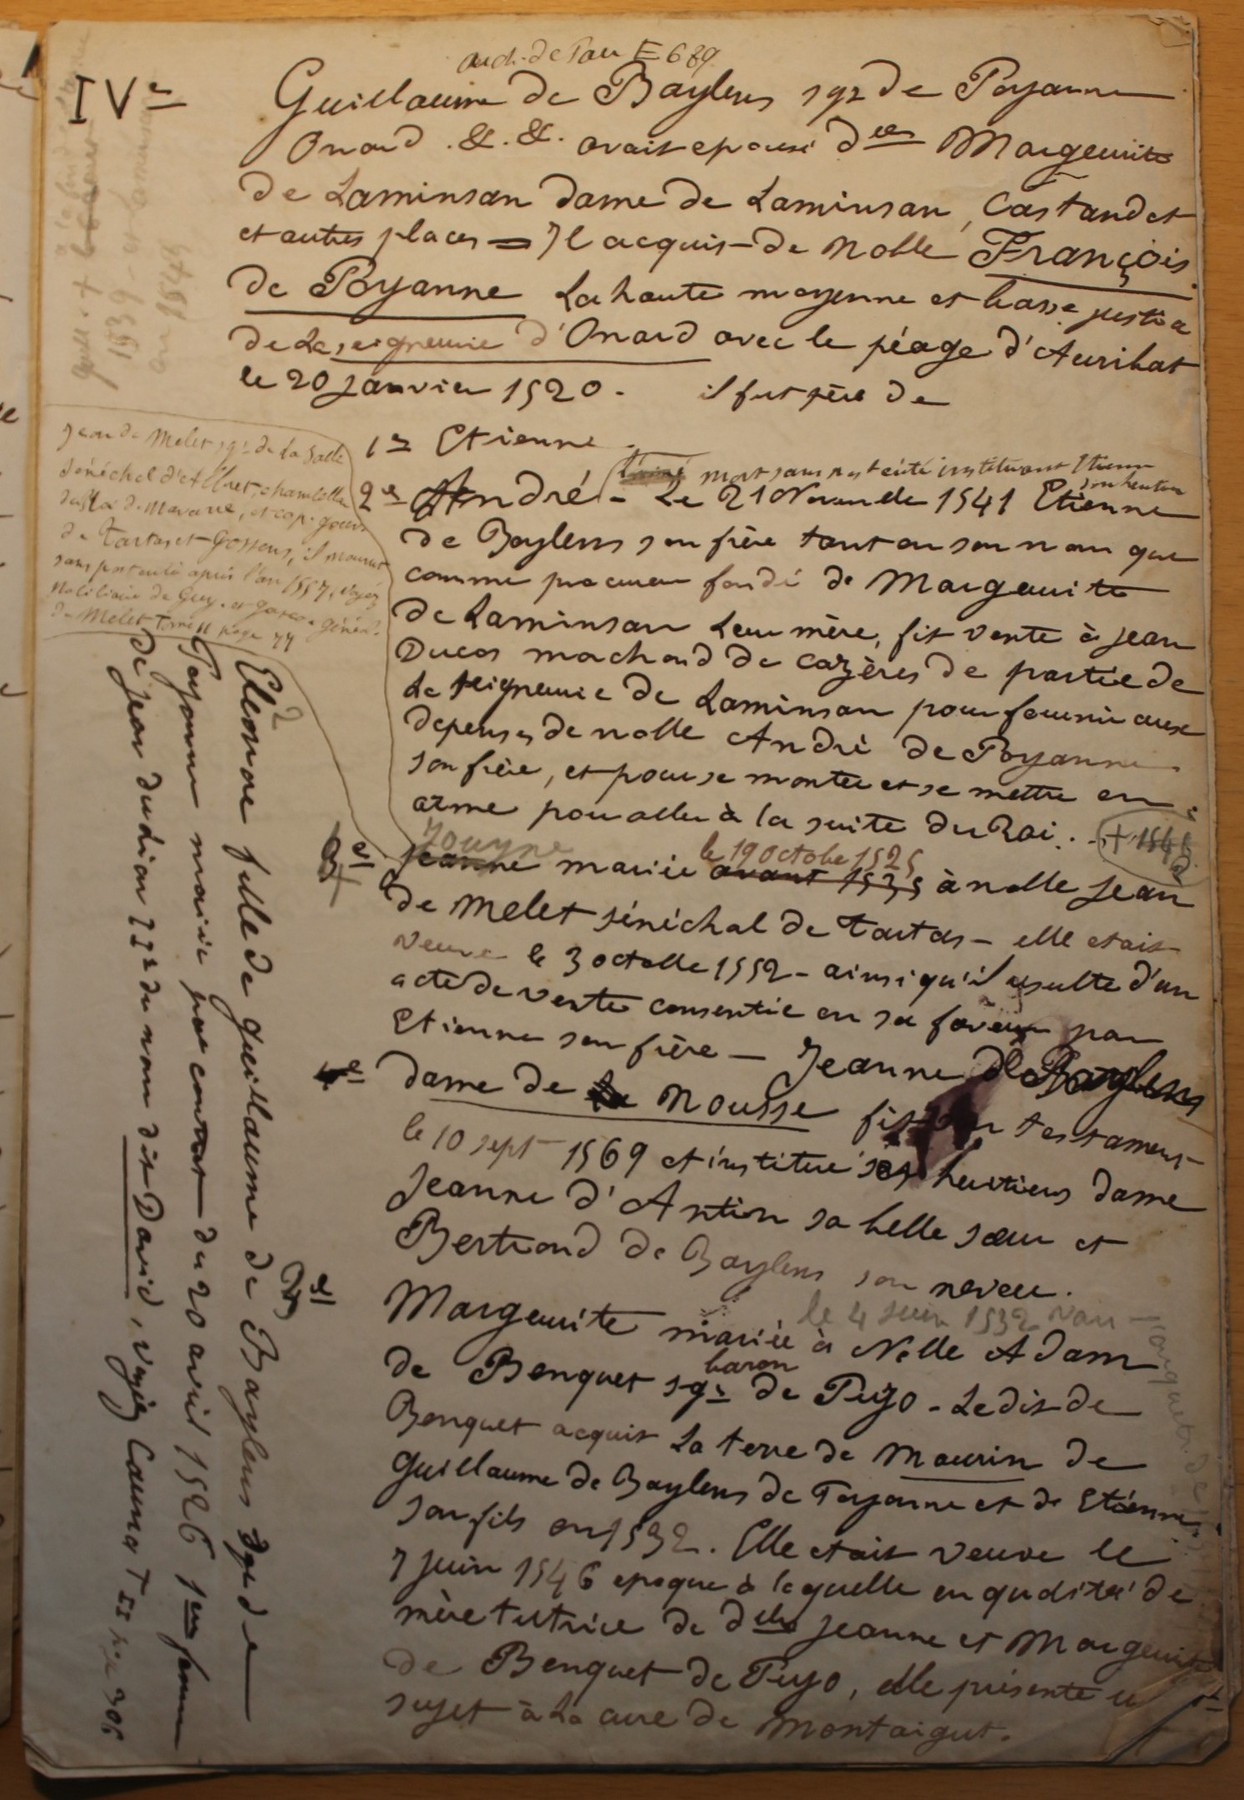 arch. de Pau E 689
IVe
Guillaume de Baylens sgr de Poyanne
Onard . &. &. avait epousé dlle Margeurite
de Laminsan dame de Laminsan, Castandet
et autres places = Il acquis de noble François
de Poyanne La haute moyenne et basse justice
de La seigneurie d'Onard avec le péage d'Aurihat
le 20 janvier 1520. il fut père de
1er Etienne.
mort sans postérité instituant Etienne
son heritier
2e André - Le 21 Novembre 1541 Etienne
de Baylens son frère tant en son nom que
comme procureur fondé de Margeurite
de Laminsan Leur mère, fit vente à jean
Ducos marchand de cazères de partie de
La seigneurie de Laminsan pour fournir aux
depenses de noble André de Poyanne
son frère, et pour se monter et se mettre en
arme pour aller à la suite du Roi.
Jouyne le 19 octobre 1525
3e jeanne mariée avant 1535 à noble jean
de Melet sénéchal de tartas - elle etait
veuve le 3 octobre 1552 - ainsi qu'il resulte d'un
acte de vente consentie en sa faveur par
Etienne son frère - Jeanne de Baylens
dame de la Nousse fit son testament
le 10 sept 1569 et institue ses heritiers dame
Jeanne d'Antin sa belle sœur et
Bertrand de Baylens son neveu.
le 4 juin 1532
Margeurite mariée à Noble Adam
baron
de Benquet sgr de Pujo - Ledit de
Benquet acquit La terre de Maurin de
guillaume de Baylens de Poyanne et de Etienne
son fils en 1532. Elle etait veuve le
7 juin 1546 epoque à laquelle en qualité de
mère tutrice de dlles jeanne et Margeurite
de Benquet de Pujo, elle présente un
sujet à La cure de Montaigut.
jean de Melet sgr de La Salle
sénéchal d'Albret, chambellan
du Roi de Navarre, et cap. gouv.
de tartas et Gossens, il mourut
sans postérité après l'an 1557, voyez
Nobiliaire de Guy. et gasco. généal.
de Melet tome II page 77
Eléonore fille de guillaume de Baylens sgr de
Poyanne mariée par contrat du 20 avril 1526 1ere femme
de jean du Lion IIe du nom dit David, voyez Cauna T II p. 305